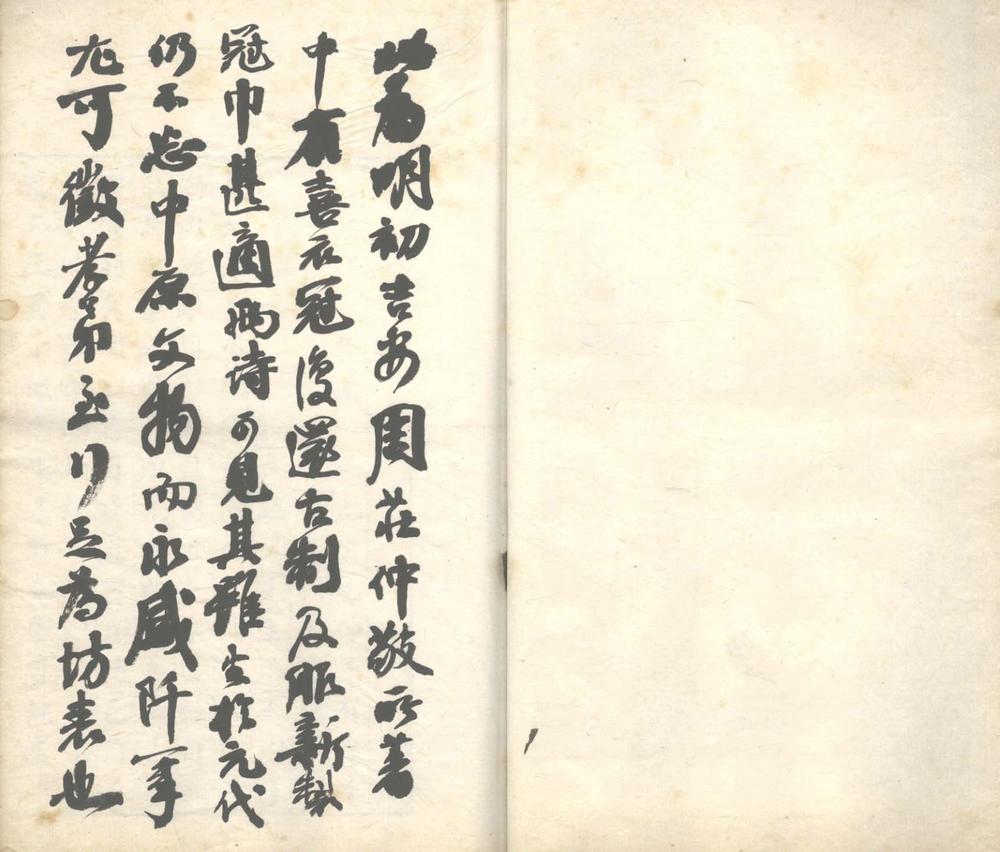 此為明初吉安周莊仲敬所著
中有喜衣冠復還古制及服新製
冠巾甚適兩詩可見其雖生於元代
仍不忘中原文物而永感阡事
尤可徵孝弟至行足為坊表也